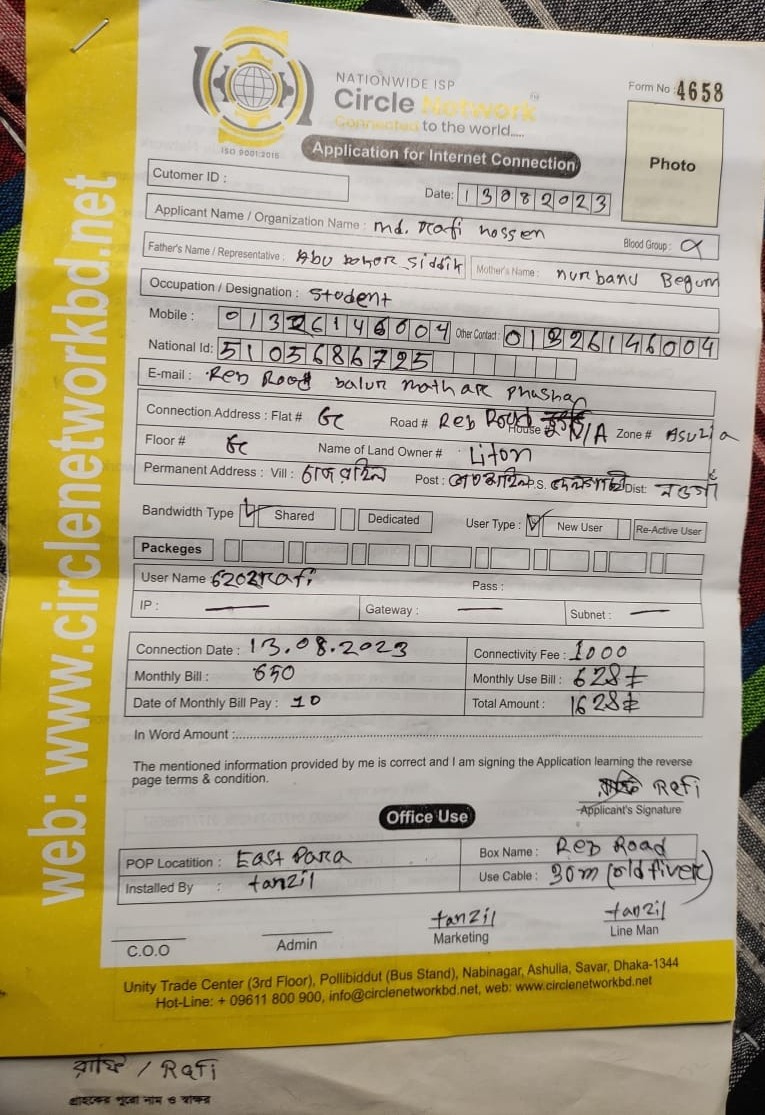 NATIONWIDE ISP
Circle Network
Connected to the world.....
ISO 9001:2015
Form No : 4658
Application for Internet Connection
Photo
Cutomer ID :
Date: 13082023
Applicant Name / Organization Name : md. Rafi hossen
Blood Group :
Father's Name / Representative : Abu bokor siddik Mother's Name : nurbanu Begum
Occupation / Designation : Student
Mobile : Other Contact :
National Id: 5105686725
E-mail : Reb Road balur math
Connection Address : Flat # Gc Road # Reb Road House # N/A Zone # Asulia
Floor # Gc Name of Land Owner # Liton
Permanent Address : Vill : Post : P.S. Dist:
Bandwidth Type Shared Dedicated User Type : New User Re-Active User
Packeges
User Name 6202Rafi Pass :
IP : — Gateway : — Subnet : —
Connection Date : 13.08.2023 Connectivity Fee : 1000
Monthly Bill : 650 Monthly Use Bill : 628
Date of Monthly Bill Pay : 10 Total Amount : 1628
In Word Amount :
The mentioned information provided by me is correct and I am signing the Application learning the reverse
page terms & condition.
Rafi
Applicant's Signature
Office Use
POP Locatition : East Para Box Name : Reb Road
Installed By : tanzil Use Cable : 30m (old fiver)
tanzil tanzil
C.O.O Admin Marketing Line Man
Unity Trade Center (3rd Floor), Pollibiddut (Bus Stand), Nabinagar, Ashulia, Savar, Dhaka-1344
Hot-Line: + 09611 800 900, info@circlenetworkbd.net, web: www.circlenetworkbd.net
web: www.circlenetworkbd.net
রাফি / Rafi
গ্রাহকের পুরো নাম ও স্বাক্ষর